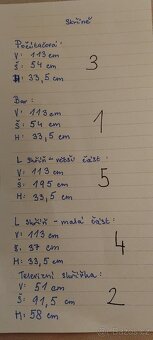 Skříně
Počítačová:
V: 113 cm
Š: 54 cm
H: 33,5 cm
3
Bar:
V: 113 cm
Š: 54 cm
H: 33,5 cm
1
L skříň - větší část:
V: 113 cm
Š: 195 cm
H: 33,5 cm
5
L skříň - malá část:
V: 113 cm
Š: 37 cm
H: 33,5 cm
4
Televizní skříňka:
V: 51 cm
Š: 91,5 cm
H: 58 cm
2